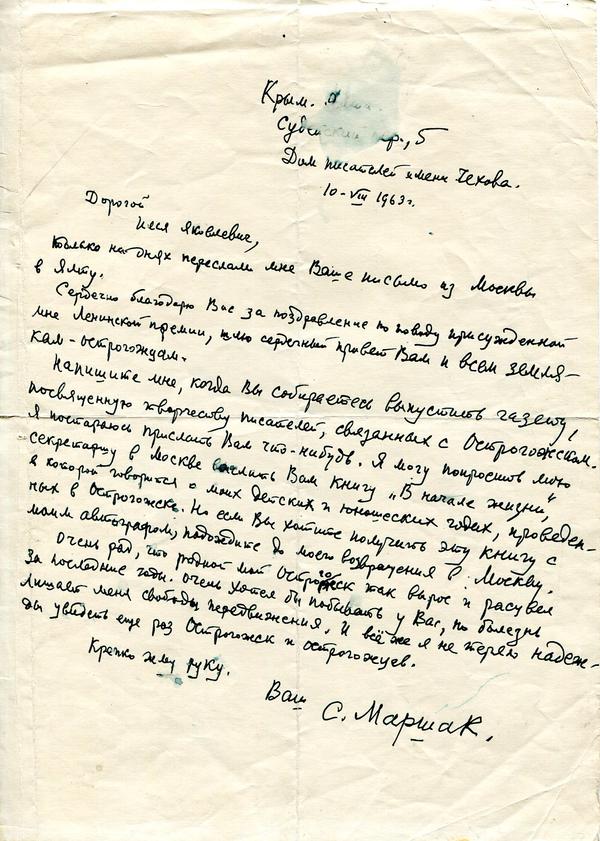 Крым.
5
Дом писателей имени Чехова.
10-VIII 1963 г.
Дорогой
Яковлевич,
только на днях переслали мне Ваше письмо из Москвы
в Ялту.
Сердечно благодарю Вас за поздравление по поводу присужденной
мне Ленинской премии, шлю сердечный привет Вам и всем земля-
кам-острогождам.
Напишите мне, когда Вы собираетесь выпустить газету,
посвященную творчеству писателей, связанных с Острогожском.
Я постараюсь прислать Вам что-нибудь. Я могу попросить мою
секретаршу в Москве выслать Вам книгу „В начале жизни",
в которой говорится о моих детских и юношеских годах, проведен-
ных в Острогожске. Но если Вы хотите получить эту книгу с
моим автографом, подождите до моего возвращения в Москву.
Очень рад, что родной мой Острогожск так вырос и расцвел
за последние годы. Очень хотел бы побывать у Вас, но болезнь
лишает меня свободы передвижения. И всё же я не теряю надеж-
ды увидеть еще раз Острогожск и острогожцев.
Крепко жму руку.
Ваш
С. Маршак.